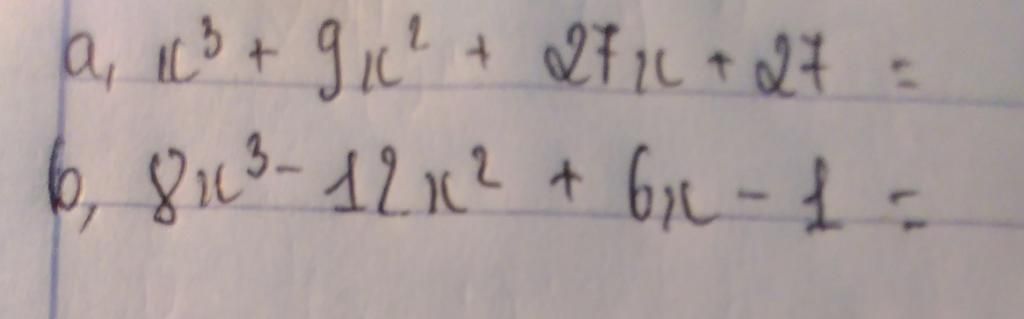 a, x³ + 9x² + 27x + 27 =
b, 8x³ - 12x² + 6x - 1 =